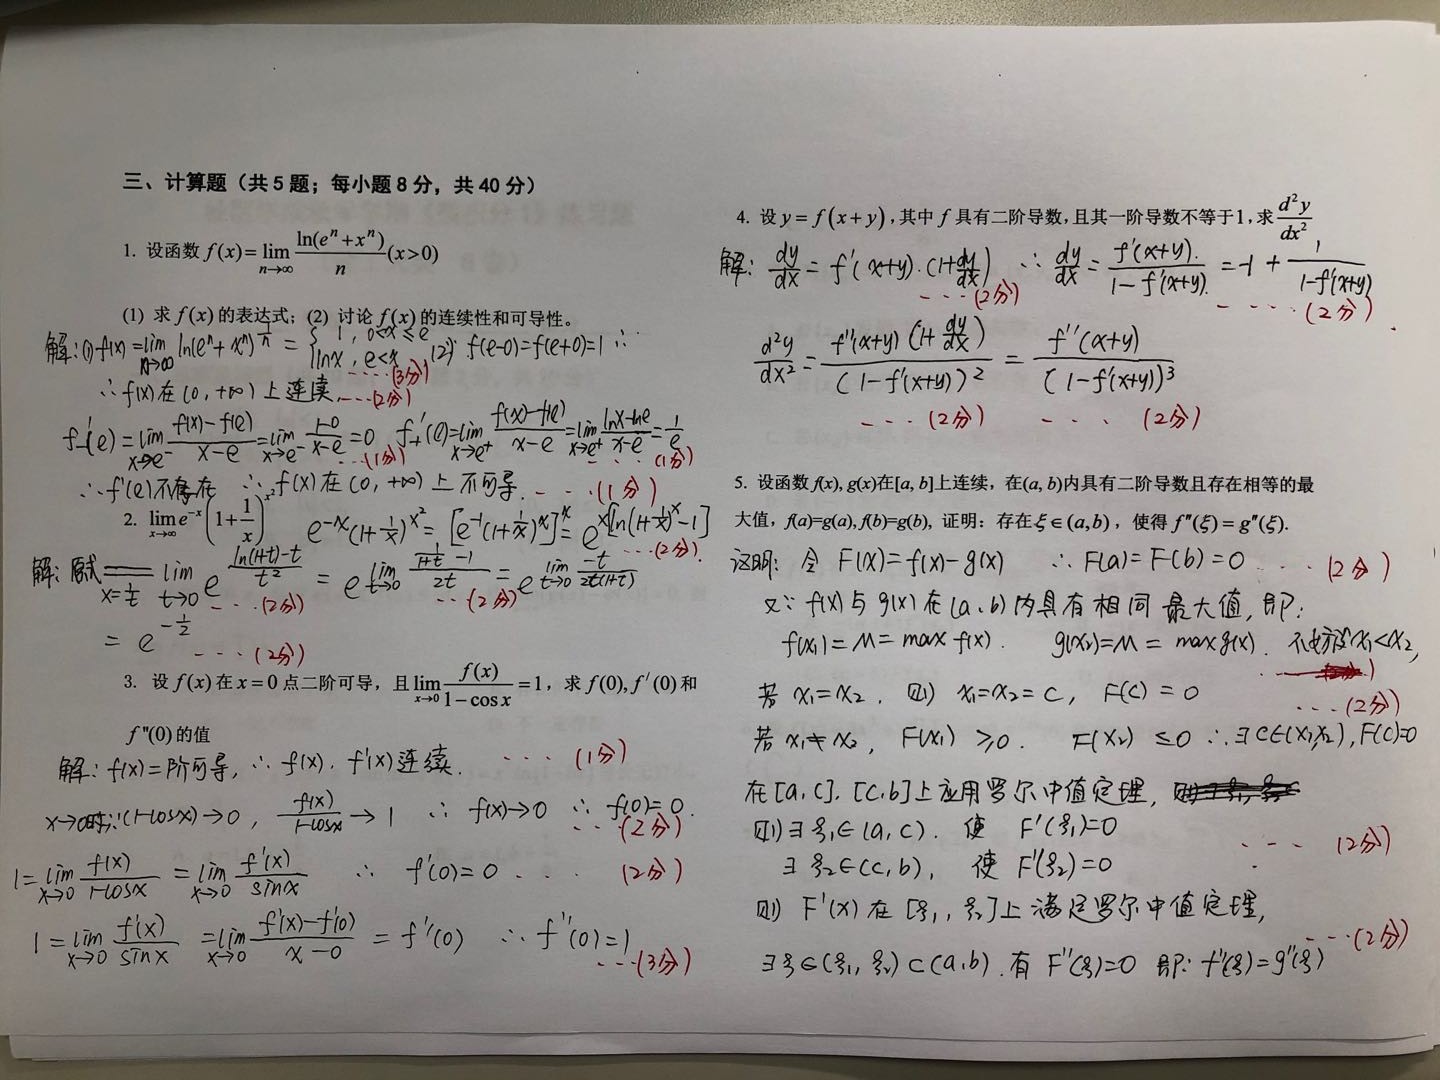 三、计算题（共5题；每小题8分，共40分）
1. 设函数 f(x)= lim_{n→∞} ln(eⁿ+xⁿ)/n (x>0)
(1) 求 f(x) 的表达式；(2) 讨论 f(x) 的连续性和可导性。
解：(1) f(x)= lim_{n→∞} ln(eⁿ+xⁿ)^{1/n} = { 1, 0<x≤e ; lnx, e<x ····(3分) (2)∵ f(e-0)=f(e+0)=1 ∵
∴ f(x)在(0,+∞)上连续. ···(2分)
f'₋(e)= lim_{x→e⁻} (f(x)-f(e))/(x-e) = lim_{x→e⁻} (1-0)/(x-e) =0 ···(1分) f'₊(e)= lim_{x→e⁺} (f(x)-f(e))/(x-e) = lim_{x→e⁺} (lnx-lne)/(x-e) = 1/e ····(1分)
∴ f'(e)不存在 ∴ f(x)在(0,+∞)上不可导. ···(1分)
2. lim_{x→∞} e^{-x}(1+1/x)^{x²} e^{-x}(1+1/x)^{x²} = [e^{-1}(1+1/x)^x]^x = e^{x[ln(1+1/x)^x-1]} ····(2分)
解：原式 =(x=1/t) lim_{t→0} e^{(ln(1+t)-t)/t²} ···(2分) = e^{lim_{t→0} (1/(1+t) -1)/2t} ···(2分) = e^{lim_{t→0} -t/2t(1+t)}
= e^{-1/2} ····(2分)
3. 设 f(x) 在 x=0 点二阶可导，且 lim_{x→0} f(x)/(1-cosx) =1，求 f(0), f'(0) 和
f''(0) 的值
解：f(x)二阶可导，∴ f(x). f'(x)连续. ····(1分)
x→0时∵(1-cosx)→0, f(x)/(1-cosx) →1 ∴ f(x)→0 ∴ f(0)=0. ···(2分)
1= lim_{x→0} f(x)/(1-cosx) = lim_{x→0} f'(x)/sinx ∴ f'(0)=0 ···· (2分)
1= lim_{x→0} f'(x)/sinx = lim_{x→0} (f'(x)-f'(0))/(x-0) = f''(0) ∴ f''(0)=1 ····(3分)
4. 设 y=f(x+y), 其中 f 具有二阶导数, 且其一阶导数不等于1, 求 d²y/dx²
解: dy/dx = f'(x+y)·(1+dy/dx) ····(2分) ∴ dy/dx = f'(x+y)/(1-f'(x+y)) = -1 + 1/(1-f'(x+y)) ····(2分)
d²y/dx² = f''(x+y)(1+dy/dx)/(1-f'(x+y))² = f''(x+y)/(1-f'(x+y))³
····(2分) ···· (2分)
5. 设函数 f(x), g(x)在[a, b]上连续，在(a, b)内具有二阶导数且存在相等的最
大值，f(a)=g(a), f(b)=g(b), 证明：存在 ξ∈(a,b)，使得 f''(ξ)=g''(ξ).
证明: 令 F(x)=f(x)-g(x) ∴ F(a)=F(b)=0 ···· (2分)
又∵ f(x)与g(x)在(a,b)内具有相同最大值, 即:
f(x₁)=M=max f(x). g(x₂)=M=max g(x). 不妨设x₁<x₂,
若 x₁=x₂, 则 x₁=x₂=c, F(c)=0 ····(2分)
若 x₁≠x₂, F(x₁)≥0. F(x₂)≤0 ∴ ∃c∈(x₁,x₂), F(c)=0
在[a,c].[c,b]上应用罗尔中值定理,
则∃ξ₁∈(a,c). 使 F'(ξ₁)=0
∃ξ₂∈(c,b), 使 F'(ξ₂)=0 ···· (2分)
则 F'(x)在[ξ₁, ξ₂]上满足罗尔中值定理,
∃ξ∈(ξ₁, ξ₂)⊂(a,b). 有 F''(ξ)=0 即: f''(ξ)=g''(ξ) ····(2分)